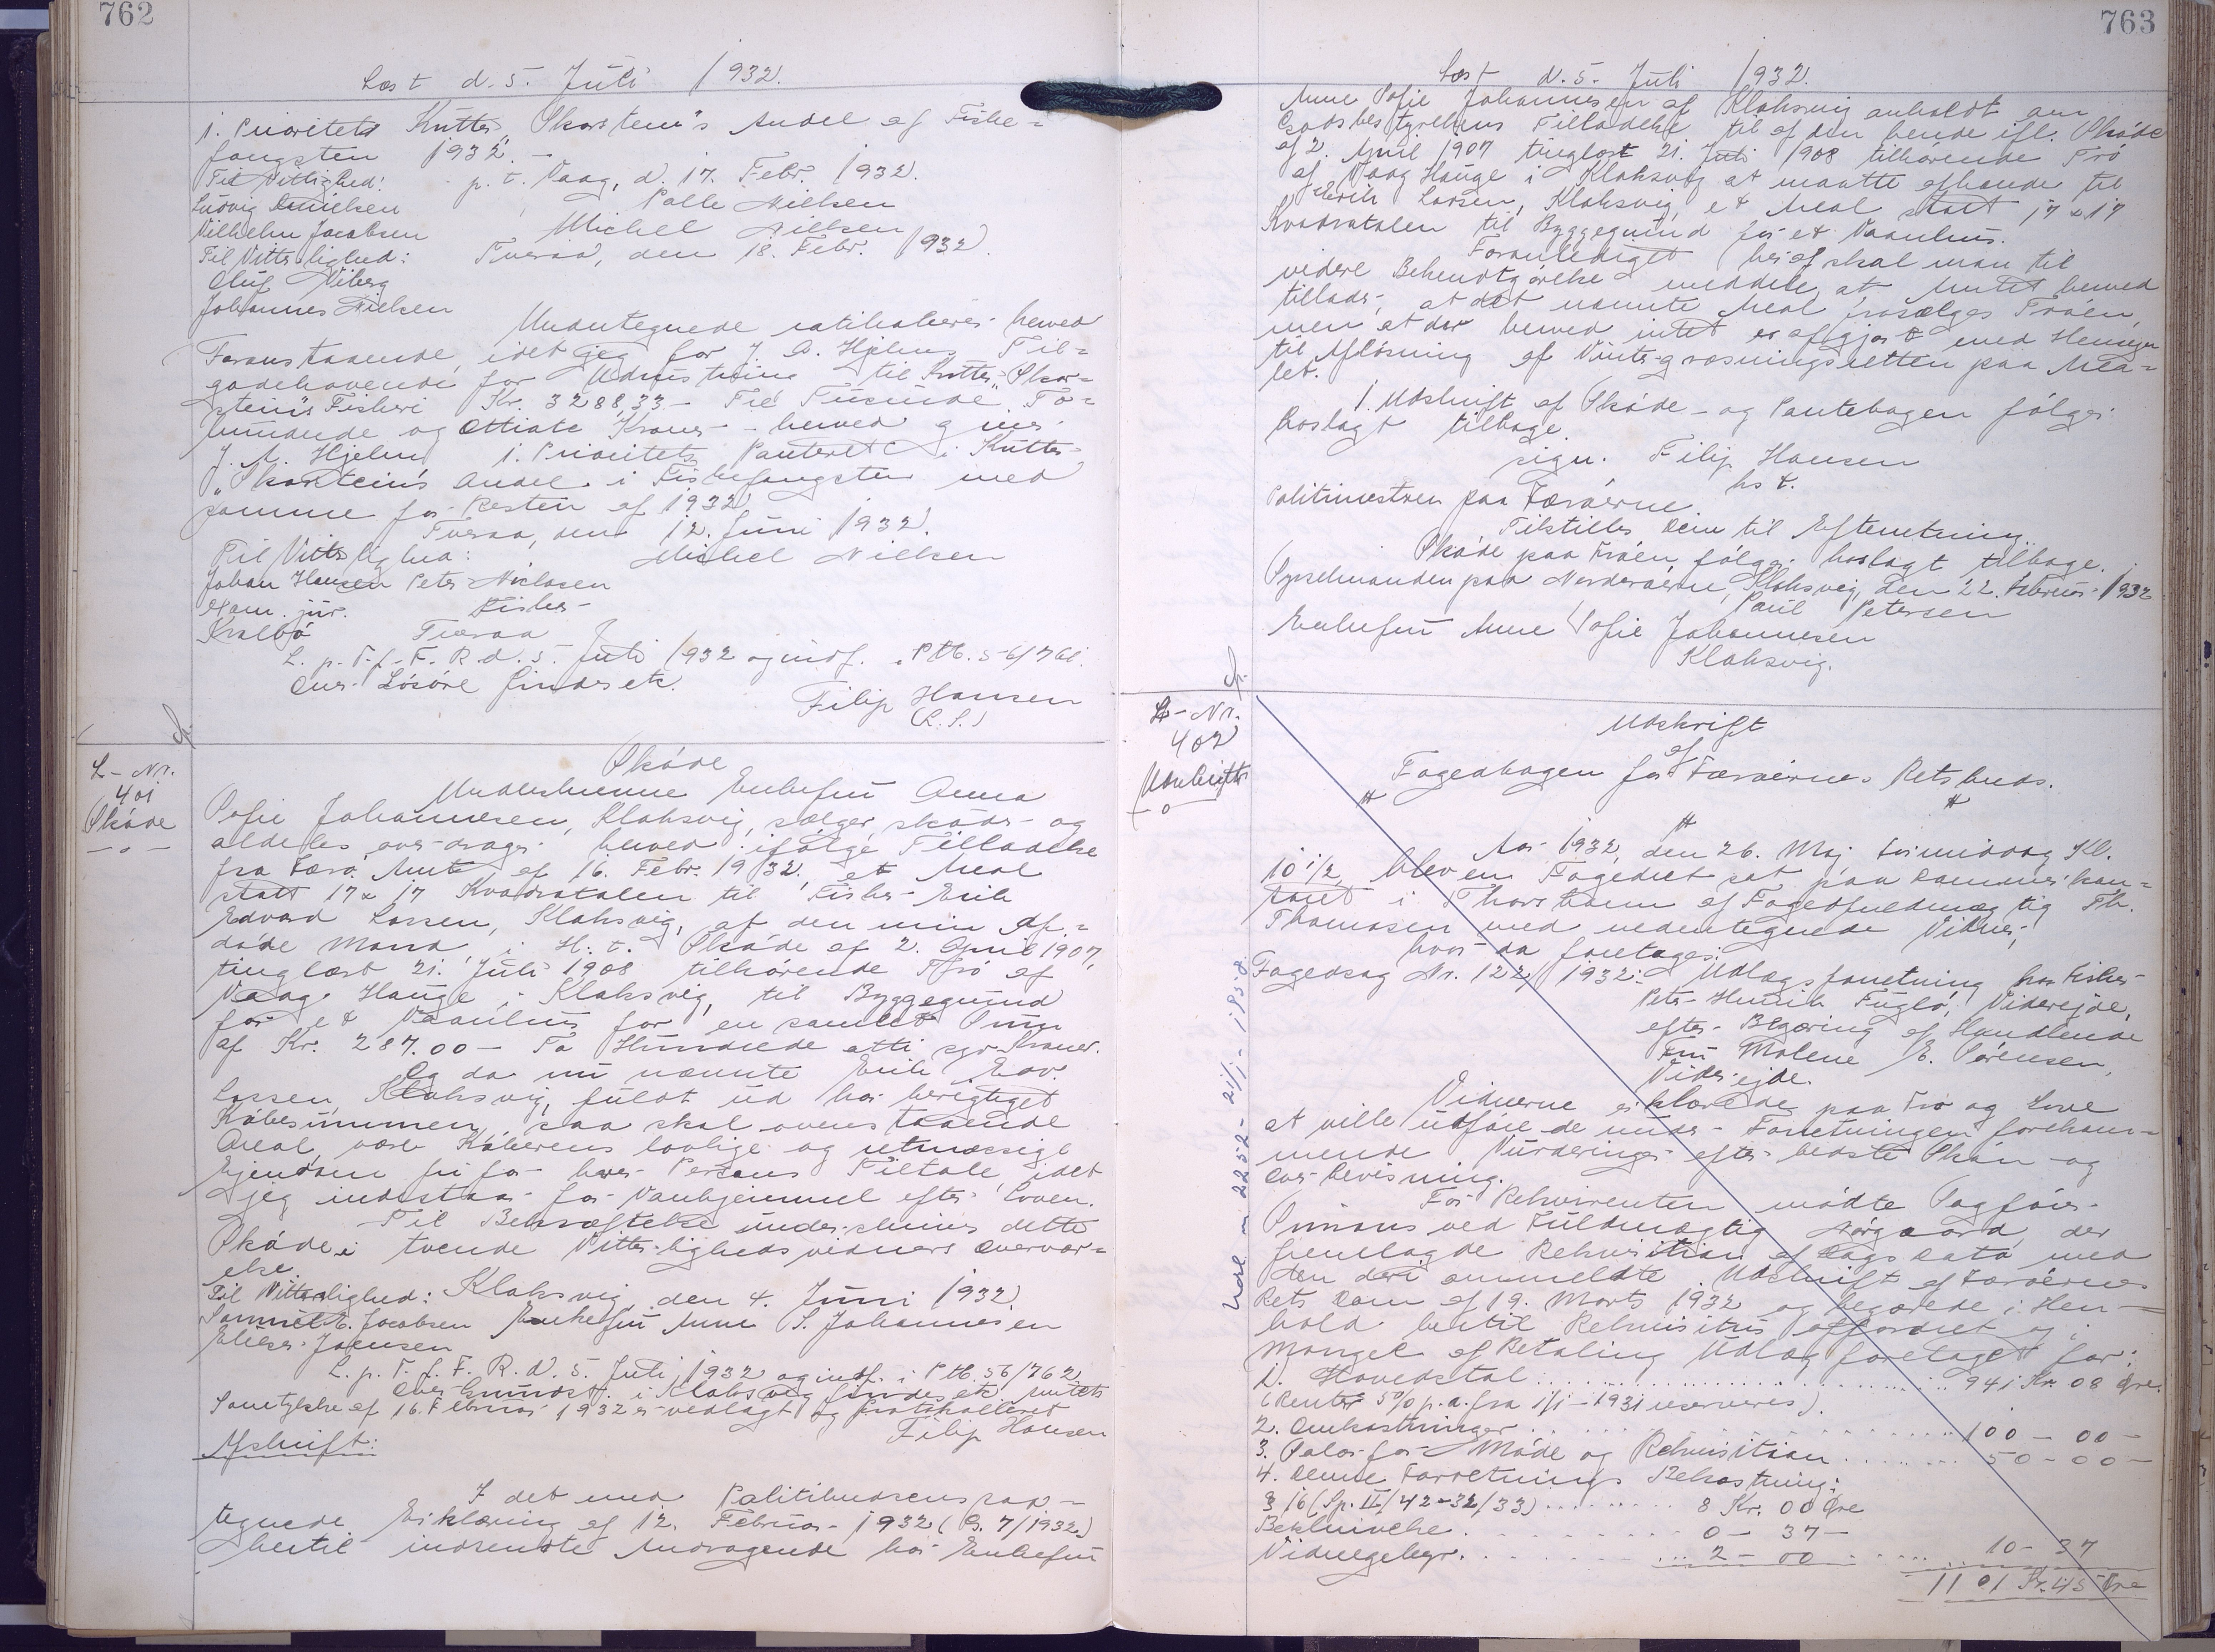 762
Læst d. 5. Juli 1932.
1. Prioritets Kutter „Skarstein"s Andel af Fiske=
fangsten 1932. —
Til Vitlighed: p. t. Vaag, d. 17. Febr. 1932.
Ludvig Emilsen Palle Nielsen
Vilhelm Jacobsen Michel Nielsen
Til Vitterlighed: Tveraa, den 18. Febr. 1932.
Oluf Viberg
Johannes Nielsen
Undertegnede ratihaberer herved
Foranstaaende, idet jeg for J. A. Hjelms Til=
godehavende for Udrustning til Kutter „Skar=
stein"s Fiskeri Kr. 3288,33 — Tre Tusinde To=
hundrede og Ottiotte Kroner — herved giver
J. A. Hjelm 1. Prioritets Panteret i Kutter
„Skarstein's Andel i Fiskefangsten med
samme for Resten af 1932.
Tveraa, den 12. Juni 1932.
Til Vitterlighed: Michel Nielsen
Johan Hansen Peter Niclasen
Ham. jür. Fisker
Kralbö Tveraa
L. p. T. f. F. R. d. 5. Juli 1932 og indf. i Ptb. 56/761.
Over Lösöre findes etc.
Filip Hansen
(L. S.)
L-Nr.
401
Sköde
—o—
Sköde
Underskrevne Enkefru Anna
Sofie Johannesen, Klaksvig, sælger, sköder og
aldeles overdrager herved ifölge Tilladelse
fra Færö Amt af 16. Febr. 1932, et Areal
stort 17 x 17 Kvadratalen til Fisker Erik
Edvard Larsen, Klaksvig, af den min af=
döde Mand, i H. t. Sköde af 2. April 1907,
tinglæst 21. Juli 1908 tilhörende Trö af
Vaag Hauge i Klaksvig, til Byggegrund
for et Vaanhus for en samlet Sum
af Kr. 287.00 — To Hundrede otti syv Kroner.
Og da nu nævnte Erik Edv.
Larsen, Klaksvig, fuldt ud har berigtiget
Köbesummen, saa skal ovenstaaende
Areal, være Köberens lovlige og retmæssige
Ejendom fri for hver Persons Tiltale, idet
jeg indestaar for Vanhjemmel efter Loven.
Til Bekræftelse underskrives dette
Sköde i tvende Vitterlighedsvidners Overvær=
else.
Til Vitterlighed: Klaksvig, den 4. Juni 1932.
Samuel E. Jacobsen Enkefru Anne S. Johannesen
Elieser Joensen
L. p. T. f. F. R. d. 5. Juli 1932 og indf. i Ptb. 56/762,
Over Grundst. i Klaksvig findes etc. Amtets
Samtykke af 16. Februar 1932 er vedlagt og protokolleret
Filip Hansen
Afskrift:
I det med Politikredsens paa=
tegnede Erklæring af 12. Februar 1932 (G. 7/1932)
hertil indsendte Andragende har Enkefru
763
Læst d. 5. Juli 1932.
Anne Sofie Johannesen af Klaksvig anholdt om
Godsbestyrelsens Tilladelse til af den hende ifl. Sköde
af 2. April 1907 tinglæst 21. Juli 1908 tilhörende Trö
af Vaag Hauge i Klaksvig at maatte afhænde til
Erik Larsen, Klaksvig, et Areal stort 17 x 17
Kvadratalen til Byggegrund for et Vaanhus.
Foranlediget heraf skal man til
videre Bekendtgörelse meddele, at Amtet herved
tillader, at det nævnte Areal frasælges Tröen,
men at der herved intet er afgjort med Hensyn
til Aflösning af Vintergræsningsretten paa Area=
let.
1. Udskrift af Sköde- og Pantebogen fölger
hoslagt tilbage.
sign. Filip Hansen
hs t.
Politimesteren paa Færöerne.
Tilstilles Dem til Efterretning.
Sköde paa Tröen fölger hoslagt tilbage.
Sysselmanden paa Norderöerne, Klaksvig, den 22. Februar 1932
Paul Petersen
Enkefru Anne Sofie Johannesen
Klaksvig.
L-Nr.
402
Udskrift
—o
Udskrift
af
Fogedbogen for Færöernes Retskreds.
Aar 1932, den 26. Maj Formiddag Kl.
10 1/2 blev en Fogedret sat paa Dommerkon=
toret i Thorshavn af Fogedfuldmægtig Th.
Thomasen med nedentegnede Vidner,
hvor da foretages:
Fogedsag Nr. 122/1932: Udlægsforretning hos Fisker
Peter Henrik Fuglö, Viderejde,
efter Begæring af Handlende
Fru Malene E. Sörensen,
Viderejde.
Vidnerne erklærede paa Tro og Love
at ville udföre de under Forretningen forekom=
mende Vurderinger efter bedste Skön og
Overbevisning.
For Rekvirenten mödte Sagförer
Simons ved Fuldmægtig Nörgaard, der
fremlagde Rekvisition af Dags Dato med
den deri ommeldte Udskrift af Færöernes
Rets Dom af 19. Marts 1932 og begærede i Hen=
hold hertil Rekvisitus opfordret og i
Mangel af Betaling Udlæg foretaget for:
1. Hovedstol ........ 941 Kr. 08 Öre.
(Renter 5% p. a. fra 1/1 - 1931 reserveres).
2. Omkostninger ........ 100 — 00 —
3. Salær for Möde og Rekvisition ........ 50 — 00 —
4. Denne Forretnings Bekostning:
§ 16 (Sp. II/42-32/33) ........ 8 Kr. 00 Öre
Beskrivelse ........ 0 — 37 —
Vidnegebyr. ........ 2 — 00 ........ 10 — 37
1101 Kr. 45 Öre